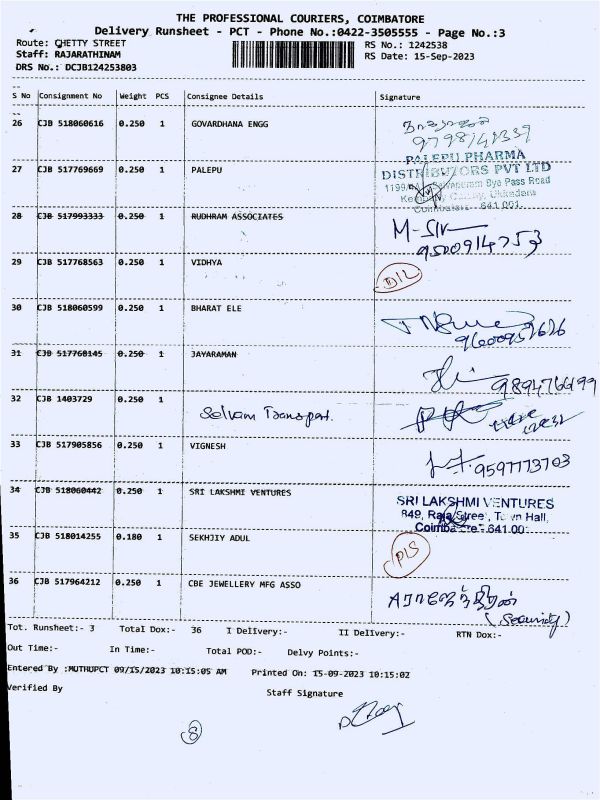 THE PROFESSIONAL COURIERS, COIMBATORE
Delivery Runsheet - PCT - Phone No.:0422-3505555 - Page No.:3
Route: CHETTY STREET RS No.: 1242538
Staff: RAJARATHINAM RS Date: 15-Sep-2023
DRS No.: DCJB124253803
S No Consignment No Weight PCS Consignee Details Signature
26 CJB 518060616 0.250 1 GOVARDHANA ENGG
27 CJB 517769669 0.250 1 PALEPU
PALEPU PHARMA
DISTRIBUTORS PVT LTD
Bye Pass Road
28 CJB 517993333 0.250 1 RUDHRAM ASSOCIATES
9500914753
29 CJB 517768563 0.250 1 VIDHYA D/L
30 CJB 518060599 0.250 1 BHARAT ELE
31 CJB 517768145 0.250 1 JAYARAMAN
32 CJB 1403729 Selvam Transport.
33 CJB 517905856 0.250 1 VIGNESH
9597773703
34 CJB 518060442 0.250 1 SRI LAKSHMI VENTURES
SRI LAKSHMI VENTURES
849, Raja Street, Town Hall,
35 CJB 518014255 0.180 1 SEKHJIY ADUL
36 CJB 517964212 0.250 1 CBE JEWELLERY MFG ASSO
(Security)
Tot. Runsheet:- 3 Total Dox:- 36 I Delivery:- II Delivery:- RTN Dox:-
Out Time:- In Time:- Total POD:- Delvy Points:-
Entered By :MUTHUPCT 09/15/2023 10:15:05 AM Printed On: 15-09-2023 10:15:02
Verified By Staff Signature
8